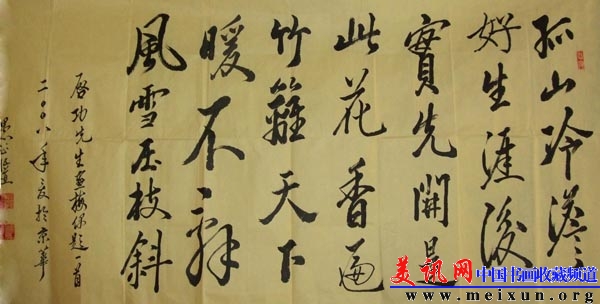 孤山冷澹
好生涯後
實先開是
此花香遍
竹籬天下
暖不辭
風雪压枝斜
啓功先生画梅偶題一首
二〇〇八年夏於京華
美讯网 中国书画收藏频道
www.meixun.org